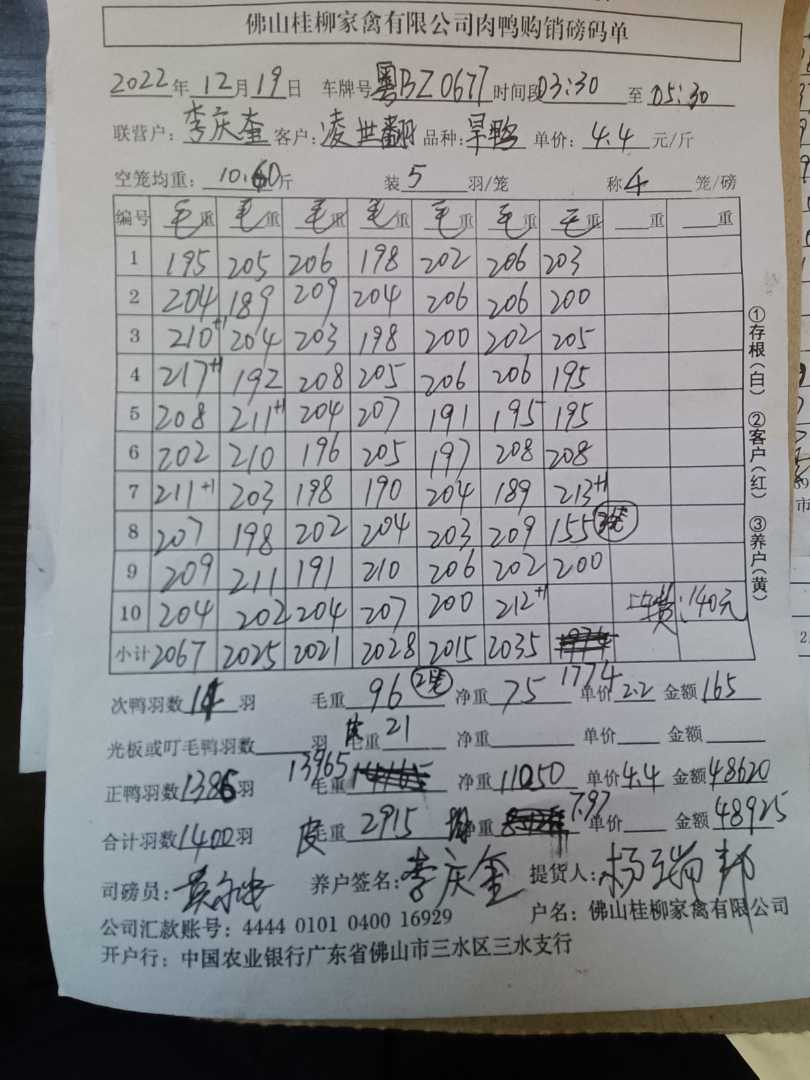 佛山桂柳家禽有限公司肉鸭购销磅码单
2022年12月19日 车牌号粤BZ0677时间段03:30至05:30
联营户:李庆奎 客户:凌世翻 品种:旱鸭 单价:4.4元/斤
空笼均重:10.60斤 装5羽/笼 称4笼/磅
编号 毛重 毛重 毛重 毛重 毛重 毛重 毛重 重 重
1 195 205 206 198 202 206 203
2 204 189 209 204 206 206 200
3 210+1 204 203 198 200 202 205
4 217+1 192 208 205 206 206 195
5 208 211+1 204 207 191 195 195
6 202 210 196 205 197 208 208
7 211+1 203 198 190 204 189 213+1
8 207 198 202 204 203 209 155 3笼
9 209 211 191 210 206 202 200
10 204 202 204 207 200 212+1 :140元
小计 2067 2025 2021 2028 2015 2035 1774
次鸭羽数14羽 毛重96 2笼 净重75 单价2.2 金额165
光板或叮毛鸭羽数 羽 皮毛重21 净重 单价 金额
正鸭羽数1386羽 毛重13965 净重11050 单价4.4 金额48620
合计羽数1400羽 皮毛重2915 净重7.97 单价 金额48925
司磅员: 养户签名:李庆奎 提货人:杨瑞邦
公司汇款账号:4444 0101 0400 16929 户名:佛山桂柳家禽有限公司
开户行:中国农业银行广东省佛山市三水区三水支行
①存根(白) ②客户(红) ③养户(黄)